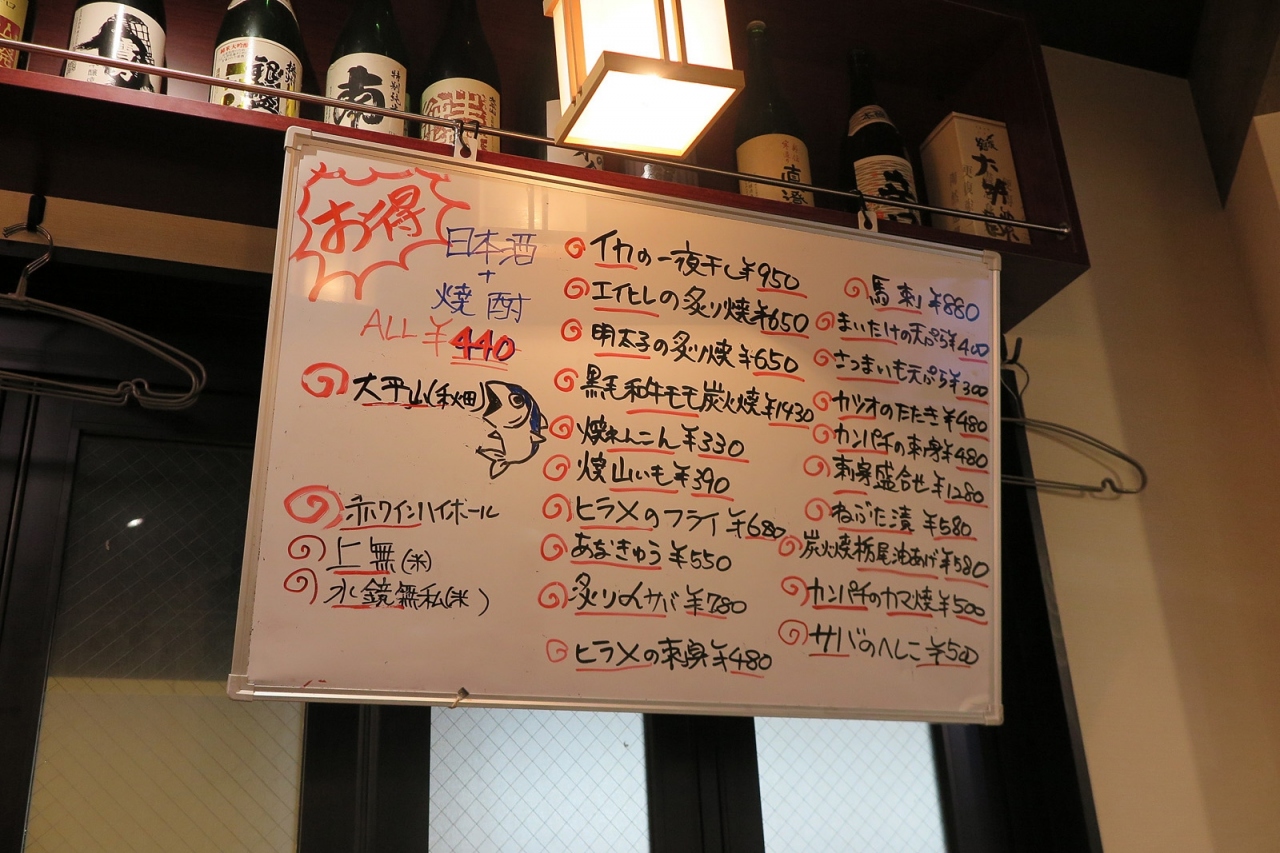 お得
日本酒
+
焼酎
ALL ¥440
大平山(秋田)
赤ワインハイボール
上無(米)
水鏡無私(米)
イカの一夜干し ¥950
エイヒレの炙り焼 ¥650
明太子の炙り焼 ¥650
黒毛和牛モモ炭火焼 ¥1430
焼れんこん ¥330
焼山いも ¥390
ヒラメのフライ ¥680
あなきゅう ¥550
炙り〆サバ ¥780
ヒラメの刺身 ¥480
馬刺 ¥880
まいたけの天ぷら ¥400
さつまいも天ぷら ¥300
カツオのたたき ¥480
カンパチの刺身 ¥480
刺身盛合せ ¥1280
ねぶた漬 ¥580
炭火焼栃尾油あげ ¥580
カンパチのカマ焼 ¥500
サバのへしこ ¥500
南
特別純米
直澄
大吟醸